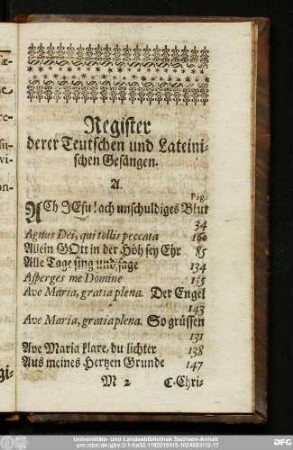 Register
derer Teutschen und Lateini-
schen Gesängen.
A.
Pag.
ACh JEsu! ach unschuldiges Blut
34
Agnus Dei, qui tollis peccata 160
Allein GOtt in der Höh sey Ehr 85
Alle Tage sing und sage 134
Asperges me Domine
Ave Maria, gratia plena. Der Engel
143
Ave Maria, gratia plena. So grüssen
131
Ave Maria klare, du lichter 138
Aus meines Hertzen Grunde 147
M 2 C. Chri-
Universitäts- und Landesbibliothek Sachsen-Anhalt
DFG